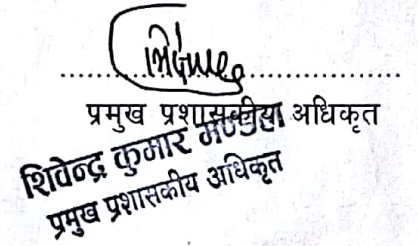 प्रमुख प्रशासकीय अधिकृत
शिवेन्द्र कुमार मण्डल
प्रमुख प्रशासकीय अधिकृत